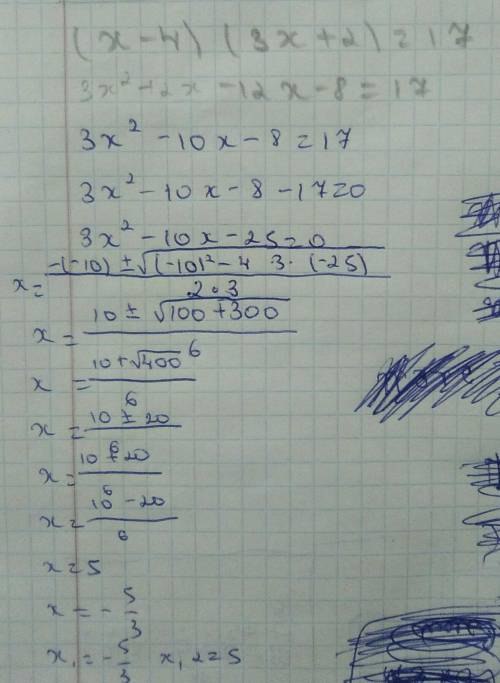 (x-4) (3x+2)=17
3x²+2x-12x-8=17
3x²-10x-8=17
3x²-10x-8-17=0
3x²-10x-25=0
x= -(-10)±√(-10)²-4 3·(-25) / 2·3
x= 10±√100+300 / 6
x= 10+√400 / 6
x= 10±20 / 6
x= 10+20 / 6
x= 10-20 / 6
x=5
x=-5/3
x₁=-5/3 x,2=5